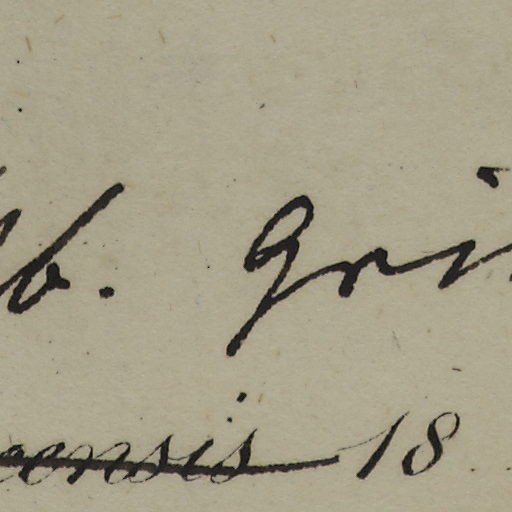 b. Gri
ensis 18